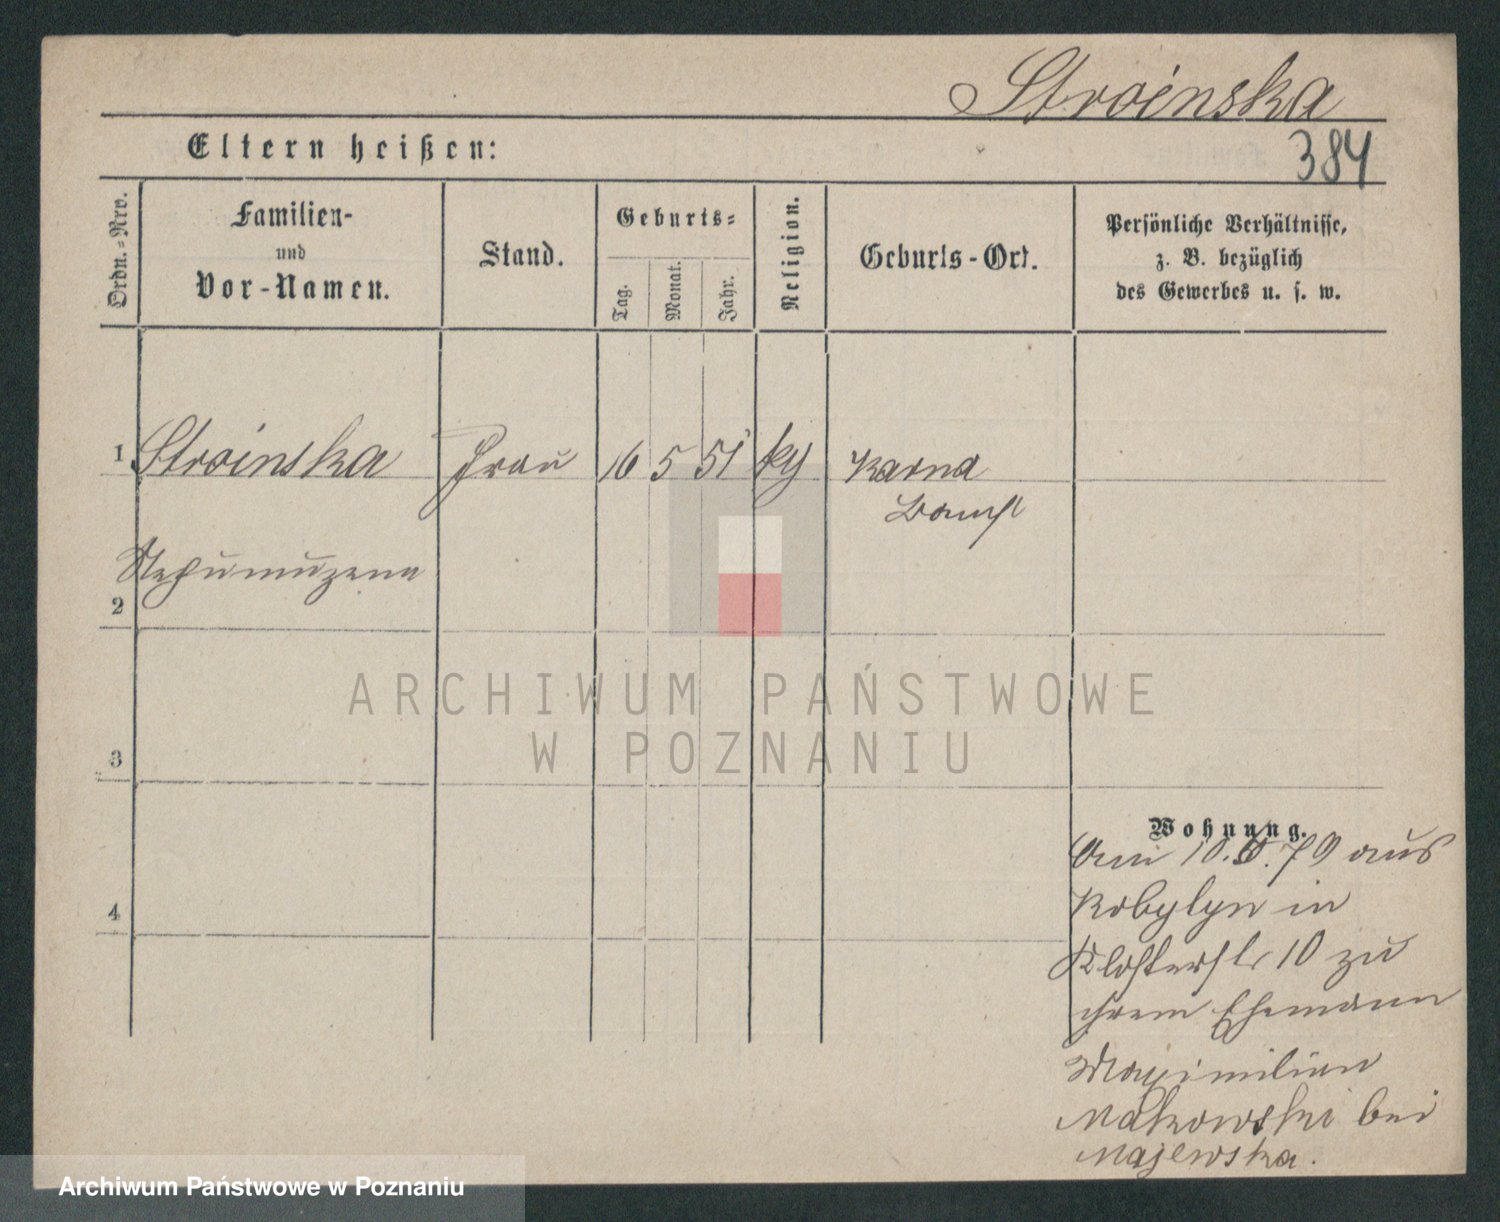 Stroinska
Eltern heißen:
384
Ordn.-Nro.
Familien-
und
Vor-Namen.
Stand.
Geburts-
Tag.
Monat.
Jahr.
Religion.
Geburts-Ort.
Persönliche Verhältnisse,
z. B. bezüglich
des Gewerbes u. s. w.
1 Stroinska Frau 16 5 51 Karna
Bomst
2
ARCHIWUM PAŃSTWOWE
W POZNANIU
3
Wohnung.
Am 10. 79 aus
4
Kobylyn in
Klosterstr 10 zu
ihrem Ehemann
Maximilian
Makowski bei
Majewska.
Archiwum Państwowe w Poznaniu